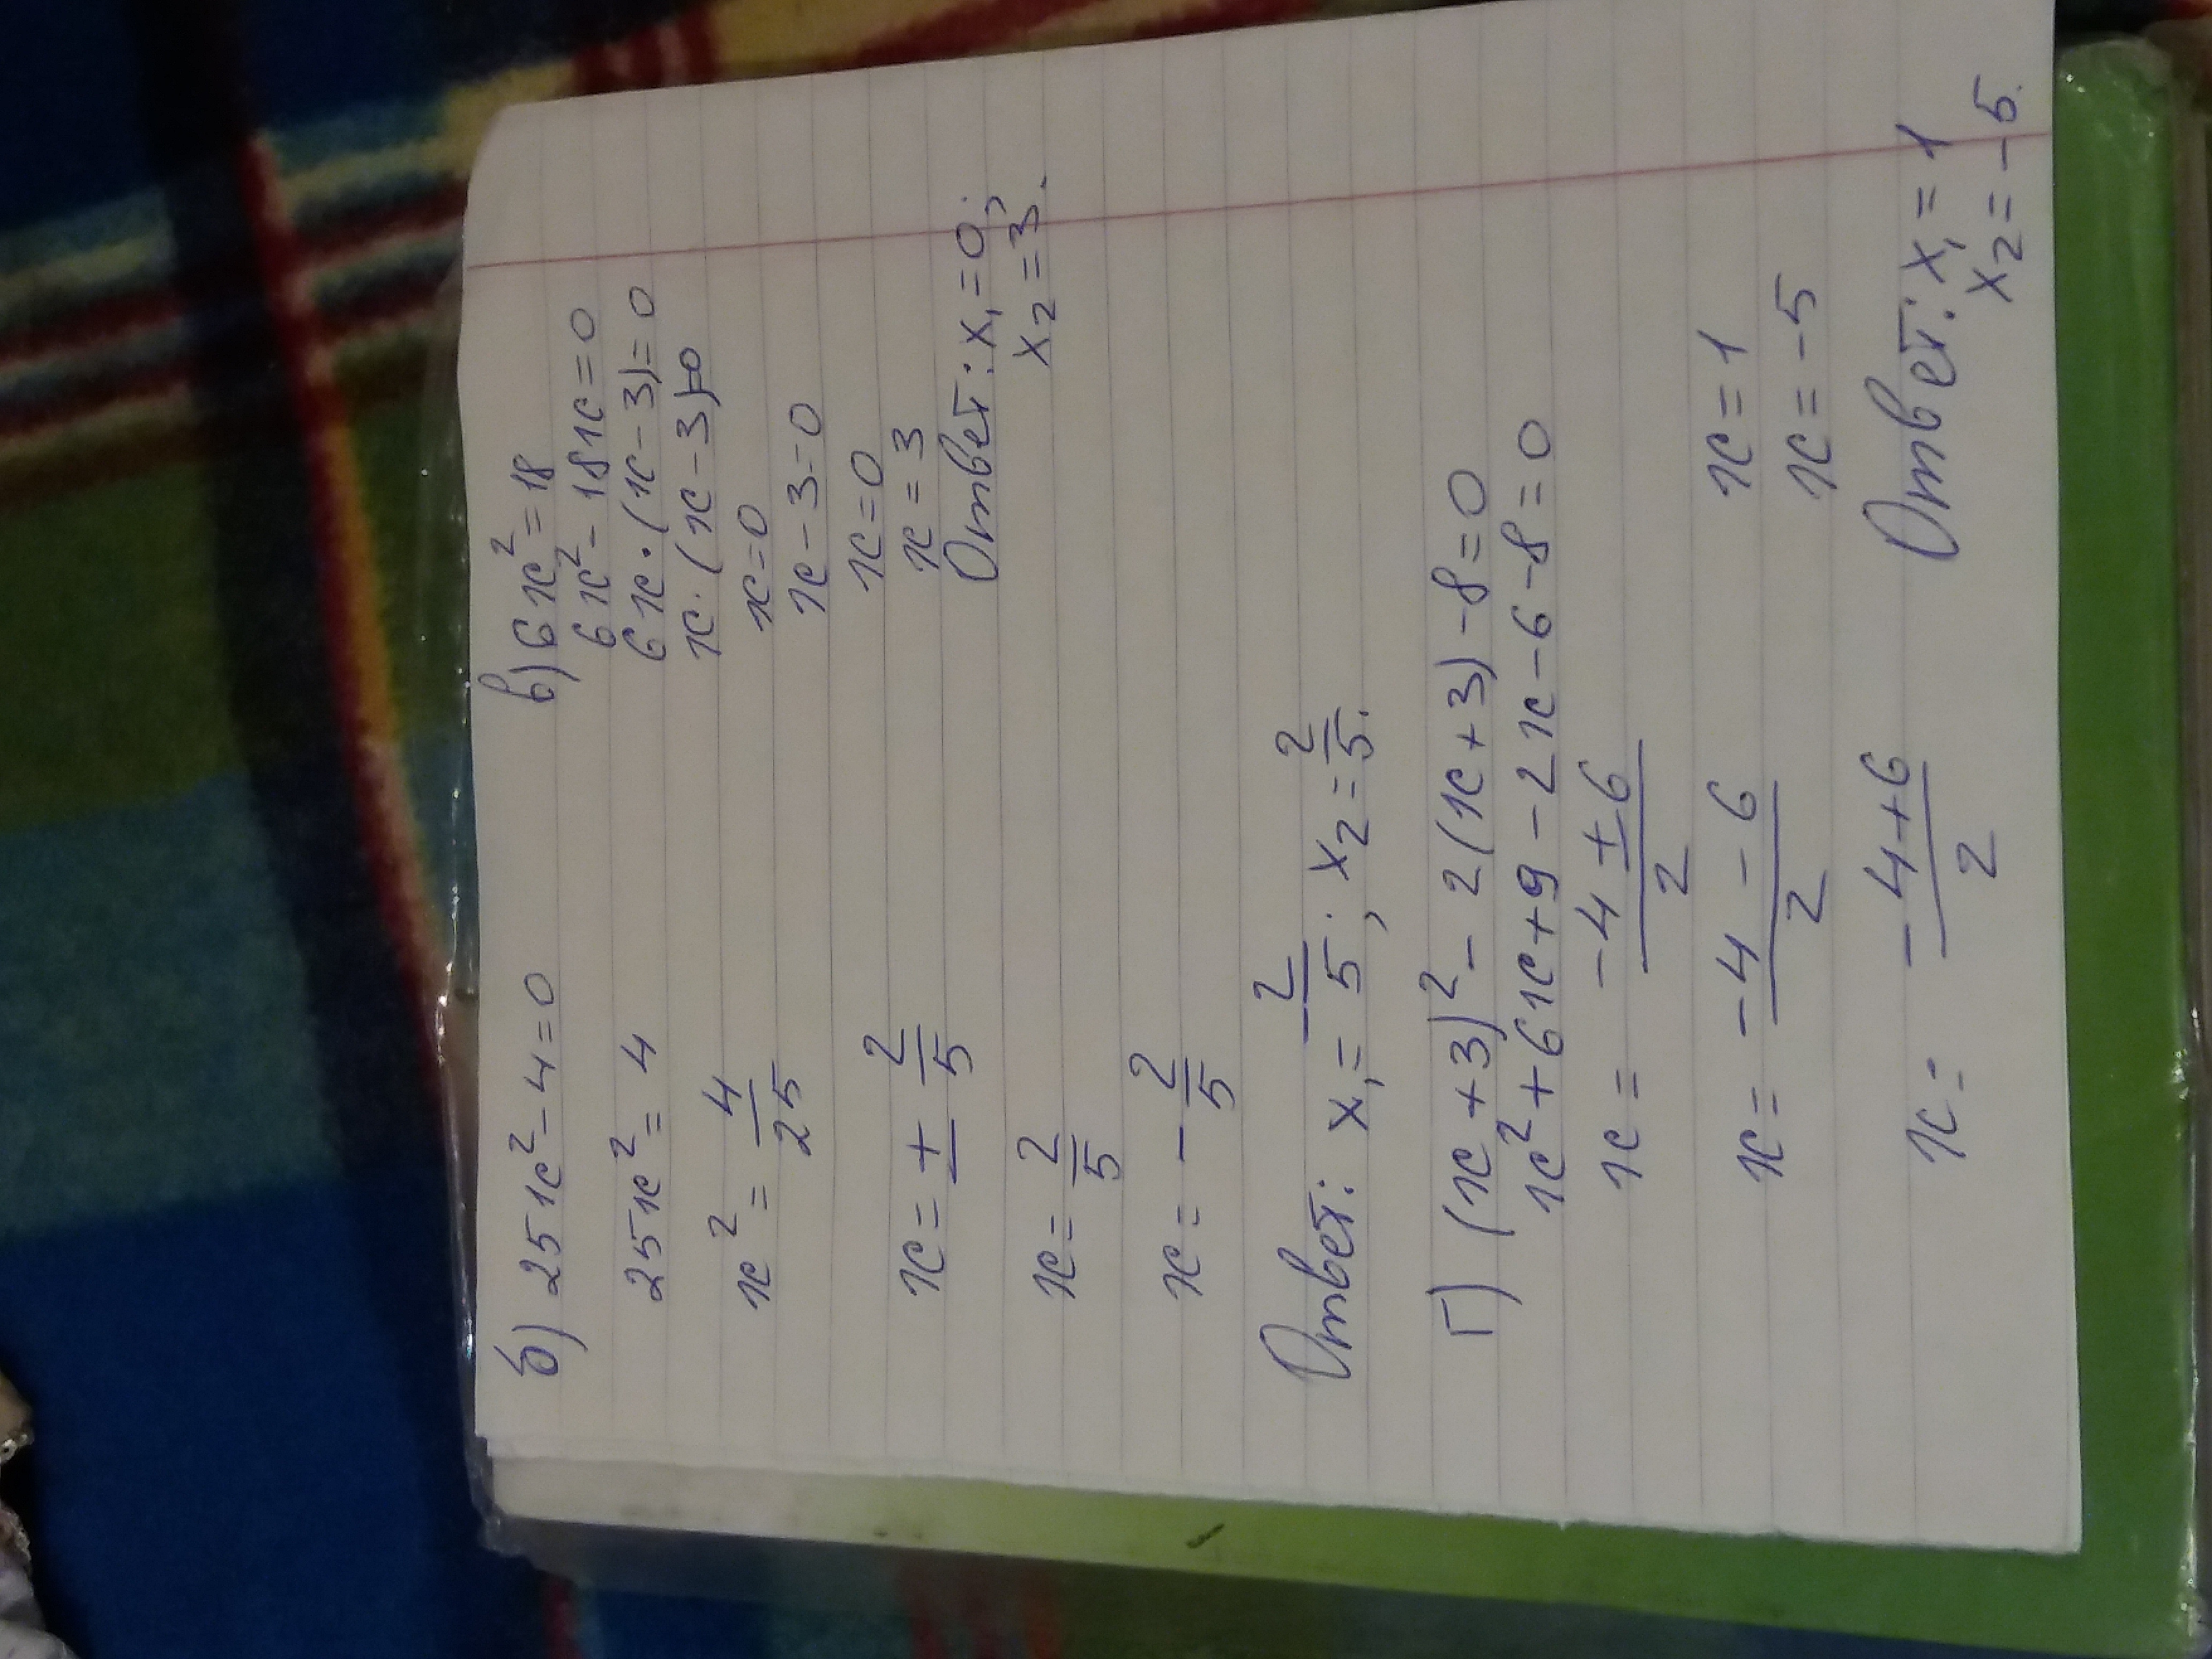 б) 25x² - 4 = 0
25x² = 4
x² = 4/25
x = ± 2/5
x = 2/5
x = - 2/5
Ответ: x₁ = -2/5; x₂ = 2/5.
в) 6x² = 18
6x² - 18x = 0
6x · (x - 3) = 0
x · (x - 3) = 0
x = 0
x - 3 = 0
x = 0
x = 3
Ответ: x₁ = 0;
x₂ = 3.
г) (x + 3)² - 2(x + 3) - 8 = 0
x² + 6x + 9 - 2x - 6 - 8 = 0
x = (-4 ± 6)/2
x = (-4 - 6)/2
x = (-4 + 6)/2
x = 1
x = -5
Ответ: x₁ = 1
x₂ = -5.